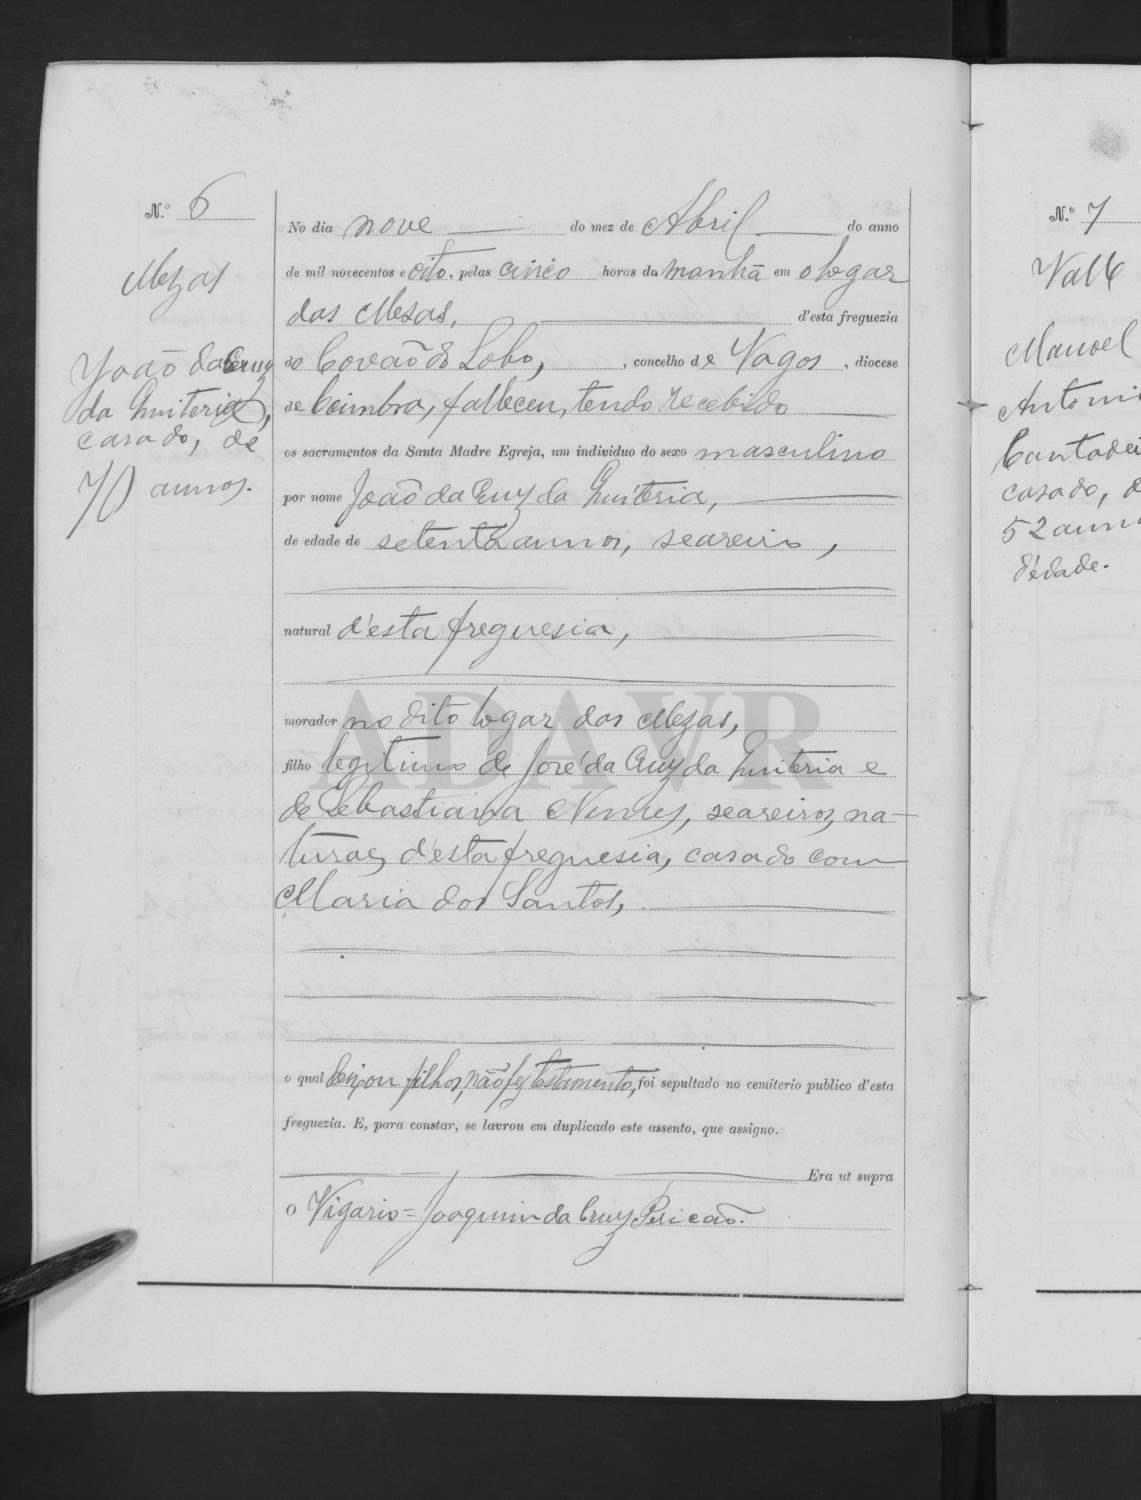 N.º 6
Mezas
João da Cruz
da Quiteria,
casado, de
70 annos.
No dia nove do mez de Abril do anno
de mil novecentos e oito, pelas cinco horas da manhã em o logar
das Mezas, d'esta freguezia
do Covão do Lobo, , concelho de Vagos , diocese
de Coimbra, falleceu, tendo recebido
os sacramentos da Santa Madre Egreja, um individuo do sexo masculino
por nome João da Cruz da Quiteria,
de edade de setenta annos, seareiro,
natural d'esta freguesia,
morador no dito logar das Mezas,
filho legitimo de José da Cruz da Quiteria e
de Sebastianna Nunes, seareiros, na-
turaes d'esta freguesia, casado com
Maria dos Santos,
o qual deixou filhos, não fez testamento, foi sepultado no cemiterio publico d'esta
freguezia. E, para constar, se lavrou em duplicado este assento, que assigno.
Era ut supra
O Vigario = Joaquim da Cruz Pericão.
ADAVR
N.º 7
Valle
Manoel
Antoni
Cantadei
casado, d
52 anno
d'edade.